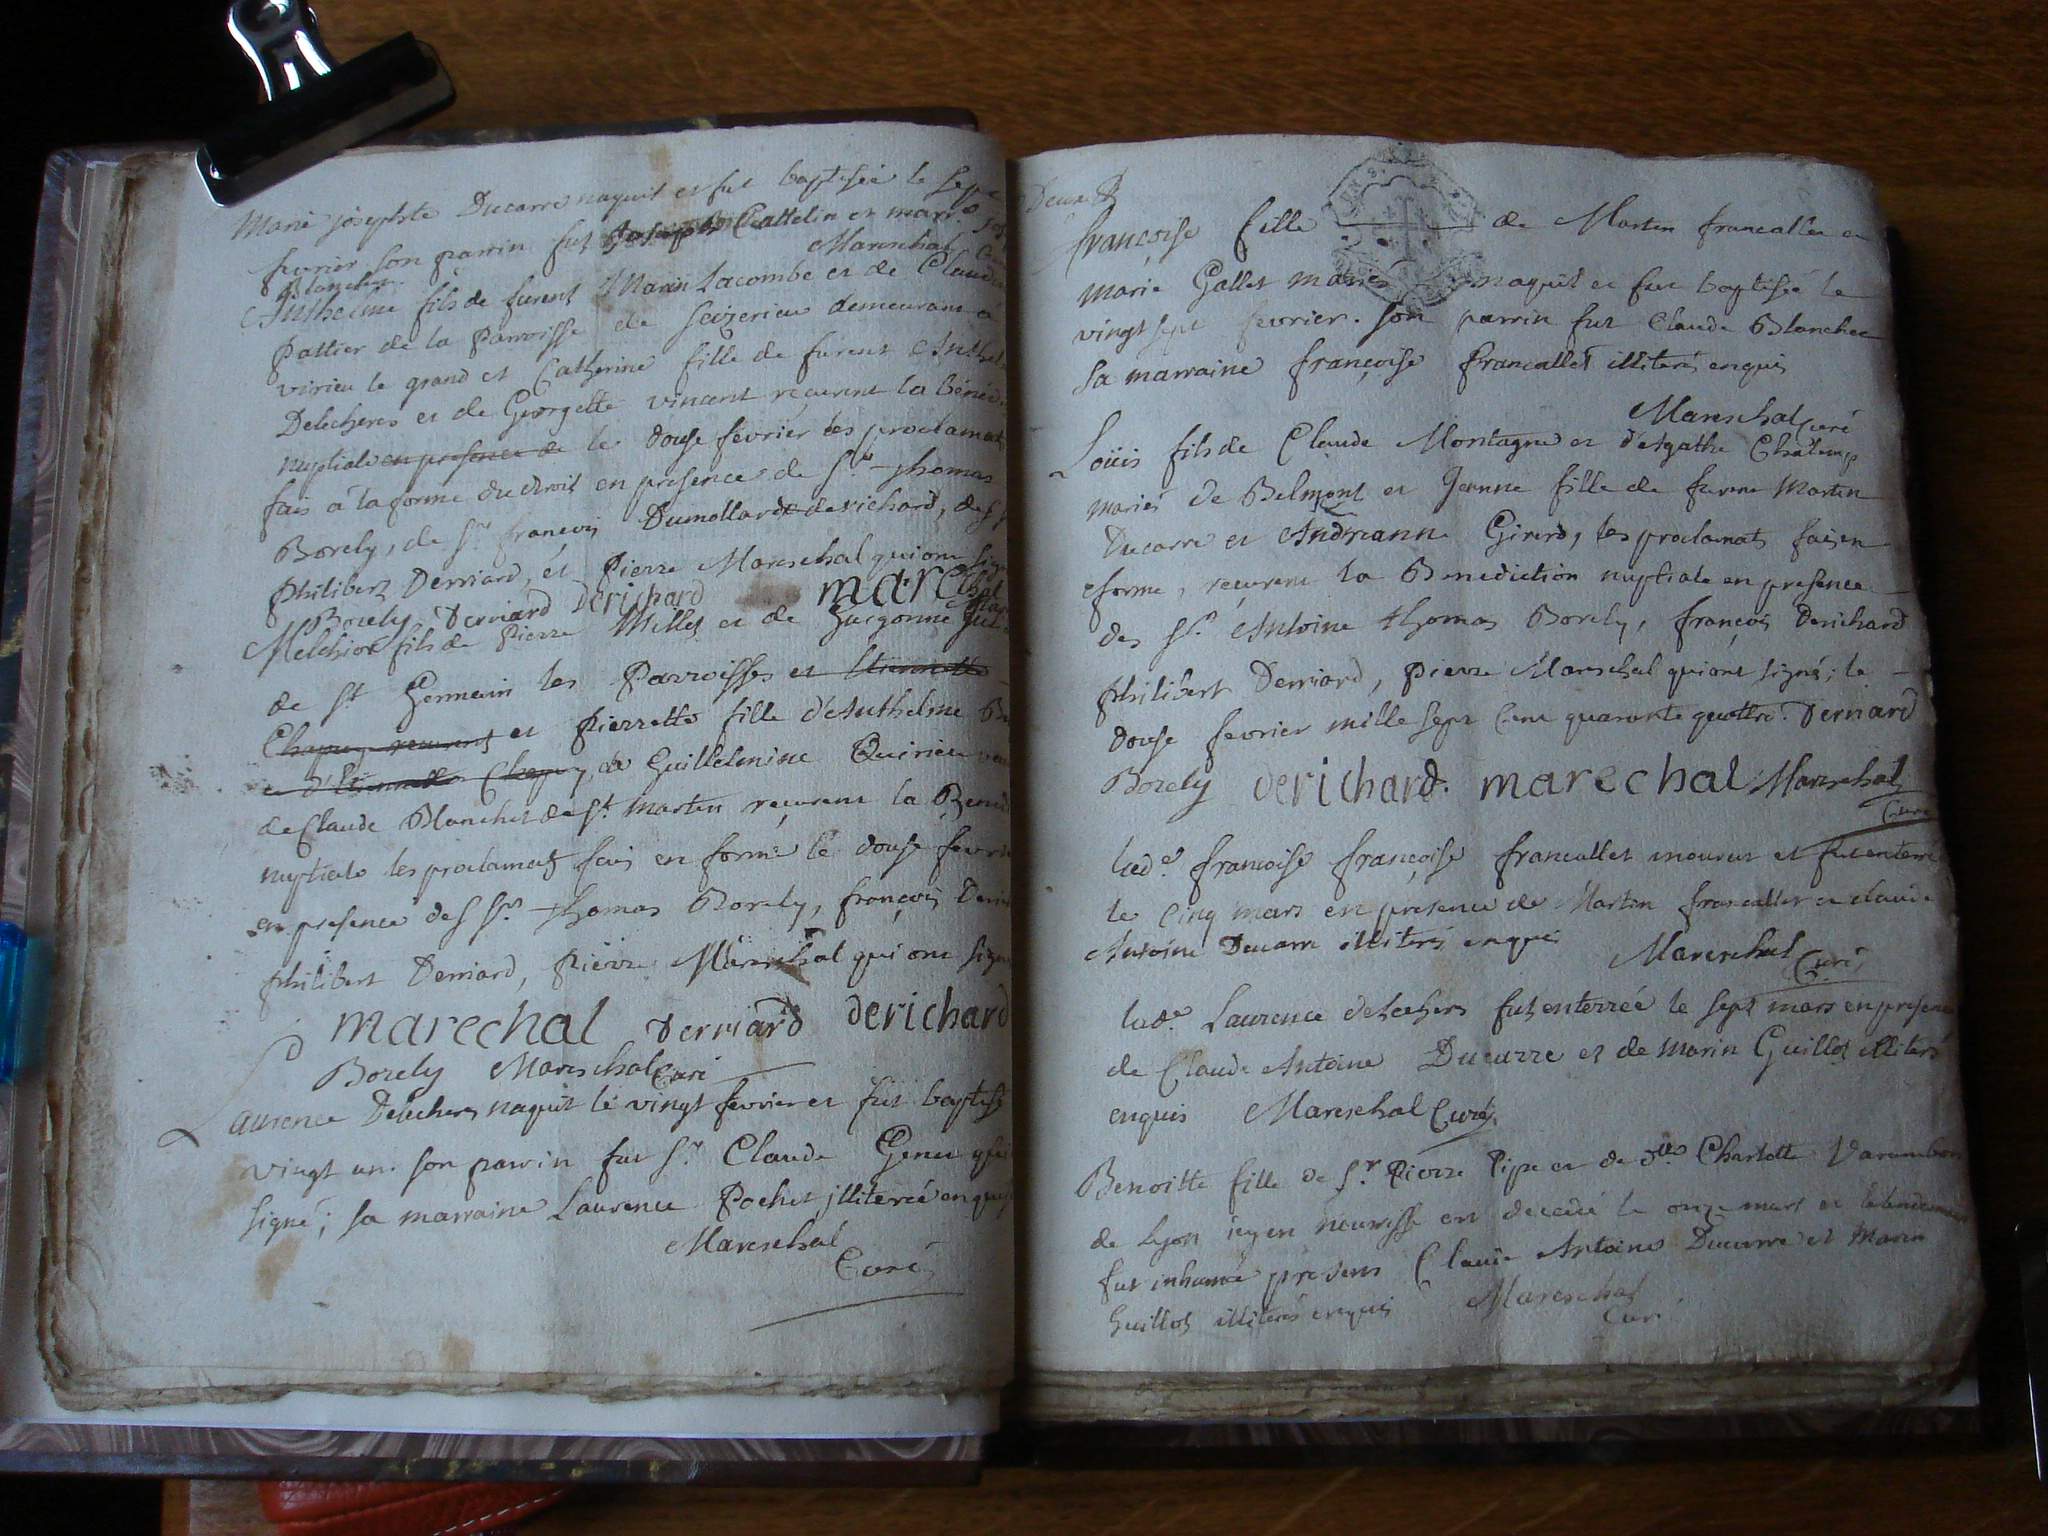 Marie josephte Ducarre naquit et fut baptisée le sept
fevrier son parrin fut Joseph Cattelin et marr.e
Mareschal
Blanchet
Anthelme fils de furent Marin Lacombe et de Claud
pattier de la parroisse de Seizerieu demeurant a
virieu le grand et Catherine fille de furent Anthel
Delecheres et de Georgette vincent reçurent la bénéd
nuptiale en presence de le douse février les proclamat
fais a la forme du droit en presence de Sr thomas
Borely, de Sr francois Dumollard derichard, de S
philibert Derriard, et pierre Mareschal qui ont sign
Borely Derriard Derichard marechal
Melchior fils de Pierre Millet et de Gurgonne
de St Germain les Parroisses et Etiennette
Chapuy reçurent et pierrette fille d'Anthelme B
e d'Etiennette Chapuy, de Guillelmine Quirieu
de Claude Blanchet de St martin reçurent la Bened
nuptiale les proclamats fais en forme le douse fevri
en presence des Srs thomas Borely, françois Deri
philibert Derriard, pierre Mareschal qui ont sign
marechal Derriard Derichard
Borely Mareschal Curé
Laurence Delecheres naquit le vingt fevrier et fut baptisé
vingt un. son parrin fut Sr Claude Genet qui
signé; sa marraine Laurence Pochet illiterée enquis
Mareschal
Curé
Deux
françoise fille de Martin francallet et
marie Gallet mariés naquit et fut baptisée le
vingt sept fevrier. son parrin fut Claude Blanchet
sa marraine françoise francallet illiterés enquis
Mareschal curé
Loüis fils de Claude Montagne et d'Agathe
mariés de Belmont et Jeanne fille de furent Martin
Ducarre et Andreanne Girard, les proclamats fais en
forme, reçurent la Benediction nuptiale en presence
des Srs Antoine thomas Borely, françois Derichard
philibert Derriard, pierre Mareschal qui ont signé; le
douse fevrier mille sept cent quarante quattre. Derriard
Borely derichard. marechal Mareschal
Curé
lad.e francoise françoise francallet mourut et fut enterré
le cinq mars en presence de Martin francallet et claude
Antoine Ducarre illiterés enquis
Mareschal Curé
lad.e Laurence delechers fut enterrée le sept mars en presence
de Claude Antoine Ducarre et de marin Guillot illiterés
enquis Mareschal Curé.
Benoitte fille de Sr Pierre Pipe et de dlle Charlotte Varambon
de Lyon icy en nourisse est decedé le onze mars et le lendemain
fut inhumée presens Claude Antoine Ducarre et Marin
Guillot illiterés enquis Mareschal
Curé